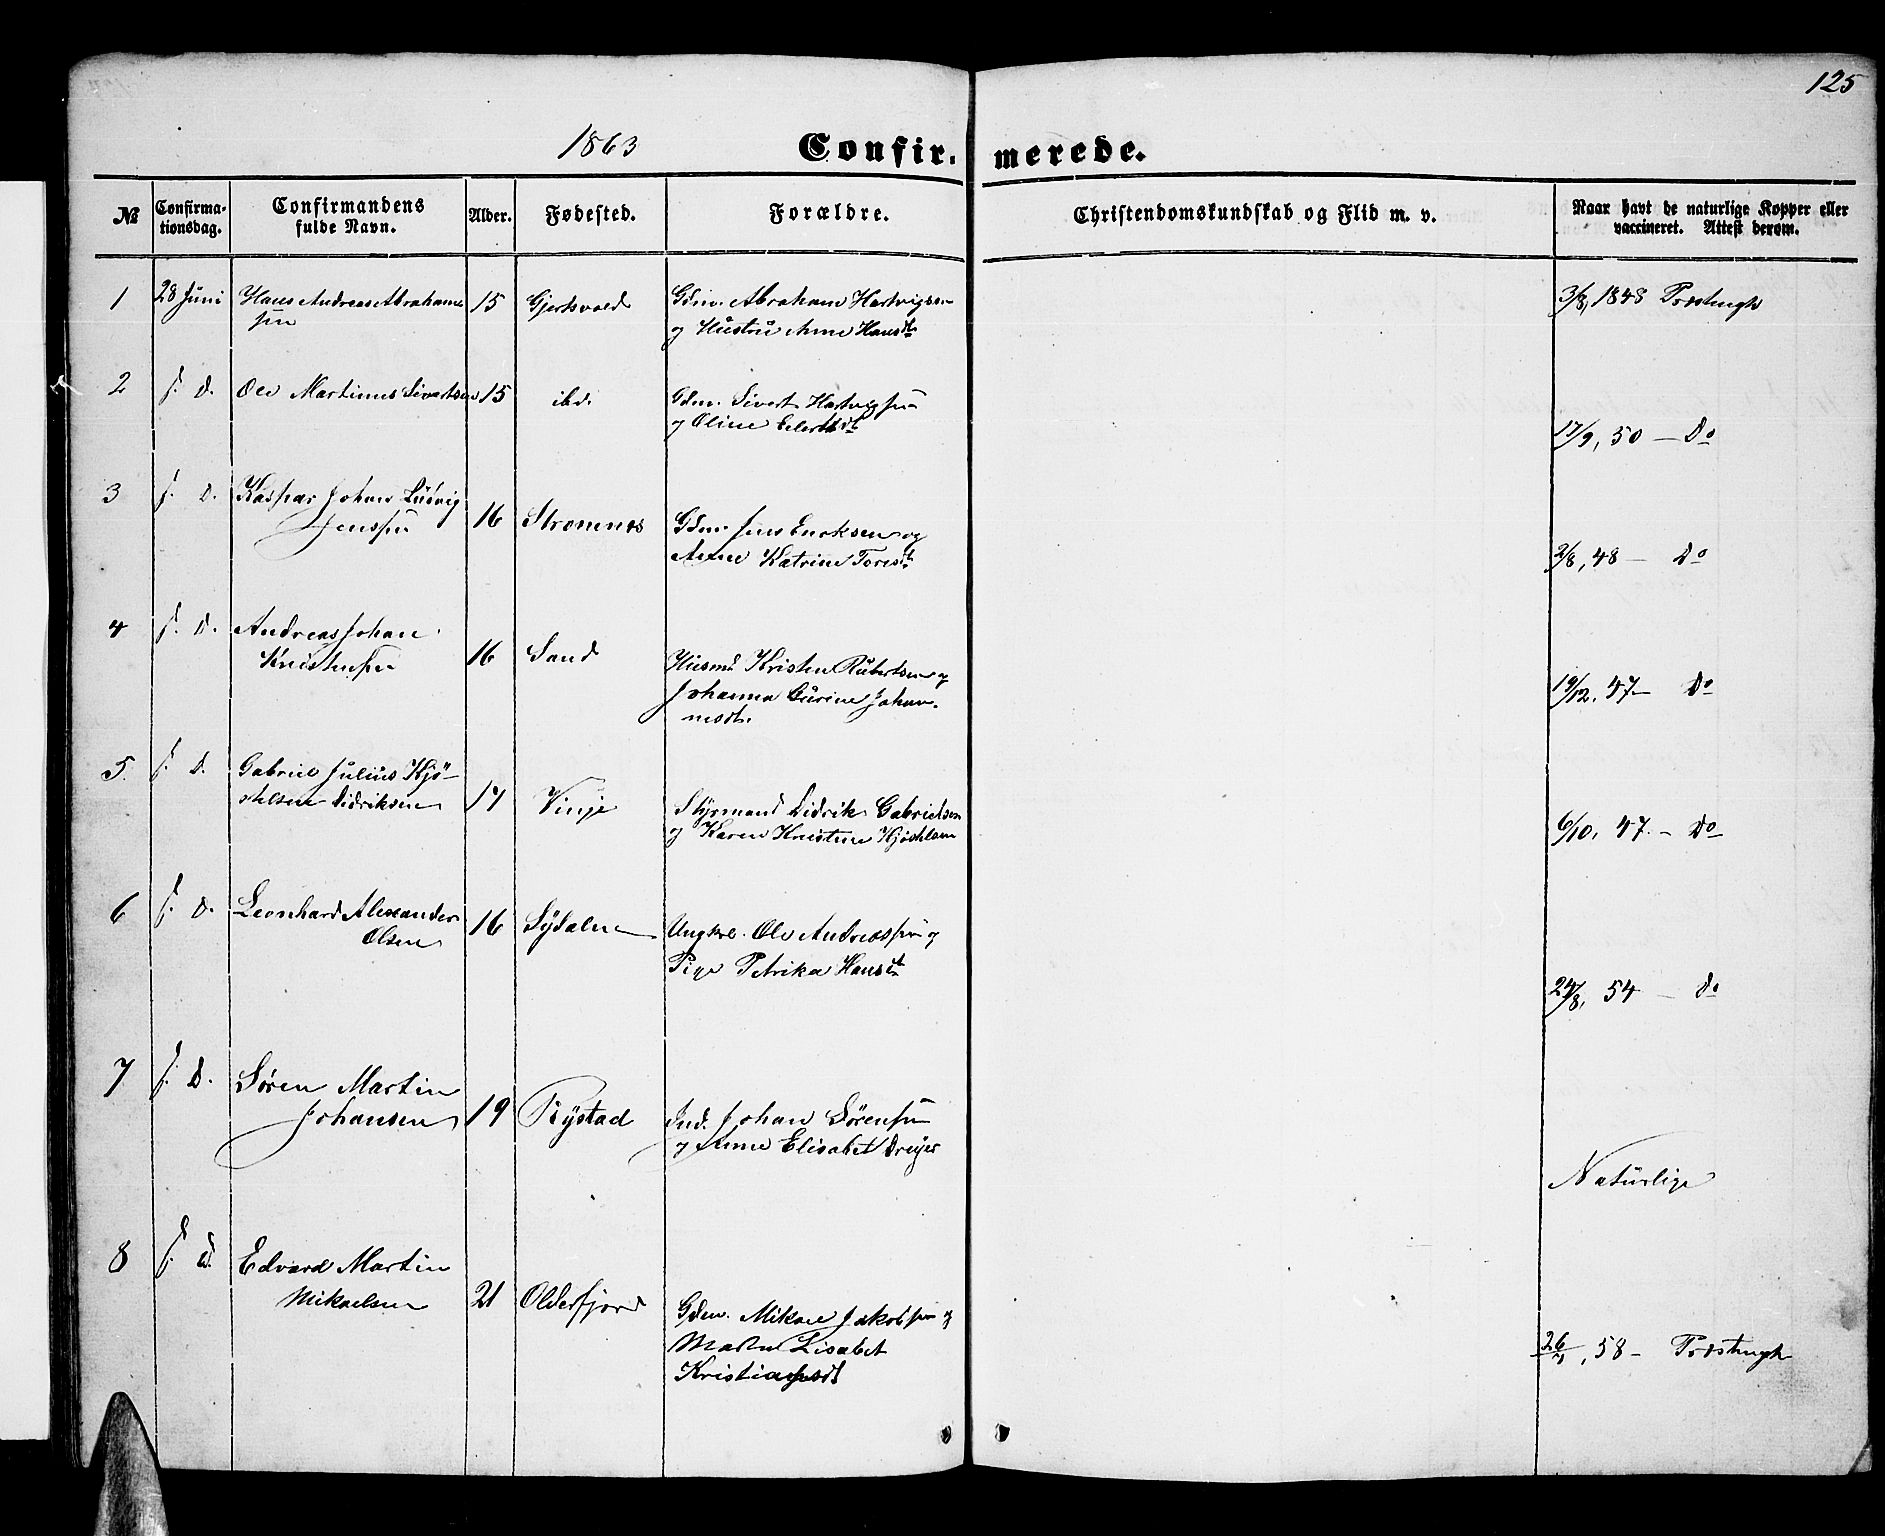 125
1863
Confir. merede.
№ Confirma- tionsdag. Confirmandens fulde Navn. Alder. Fødested. Forældre. Christendomskundskab og Flid m. v. Naar havt de naturlige Kopper eller vaccineret. Attest derom.
1 28 Juni Hans Andreas Abraham- 15 Gjertsvold Gdm. Abraham Hartvigssen 3/8, 1848
sen og Hustru Anne Hansdt
2 f. D. Ole Martinus Sivertsen 15 ibd. Gdm. Sivert Hartvigsen
og Oline 17/9, 50 — Do
3 f. D. Kaspar Johan Ludvig
Jenssen 16 Strømnes Gdm. Jens Eriksen og
Anne Katrine Toresdt 2/8, 48 — Do
4 f. D. Andreas Johan
Kristensen 16 Sand Husmd Kristen Rubertsen og
Johanna Johan-
nesdt. 19/12, 47 — Do
5. f. D. Gabriel Julius Kjø-
stelsen Didriksen 17 Vinje Styrmand Didrik Gabrielsen
og Karen Kristine 6/10, 47. — Do
6 f. D. Leonhard Alexander
Olsen 16 Sydalen Ungkrl. Ole Andreassen og
Pige Petrika Hansdt
24/8, 54 — do
7 f. D. Søren Martin
Johansen 19 Rystad Ind. Johan Sørensen
og Anne Elisabet Dreyer
Naturlige
8 f. D. Edvard Martin
Mikaelsen 21 Olderfjord Gdm. Mikael Jakobsen og
Lisabet 58 —